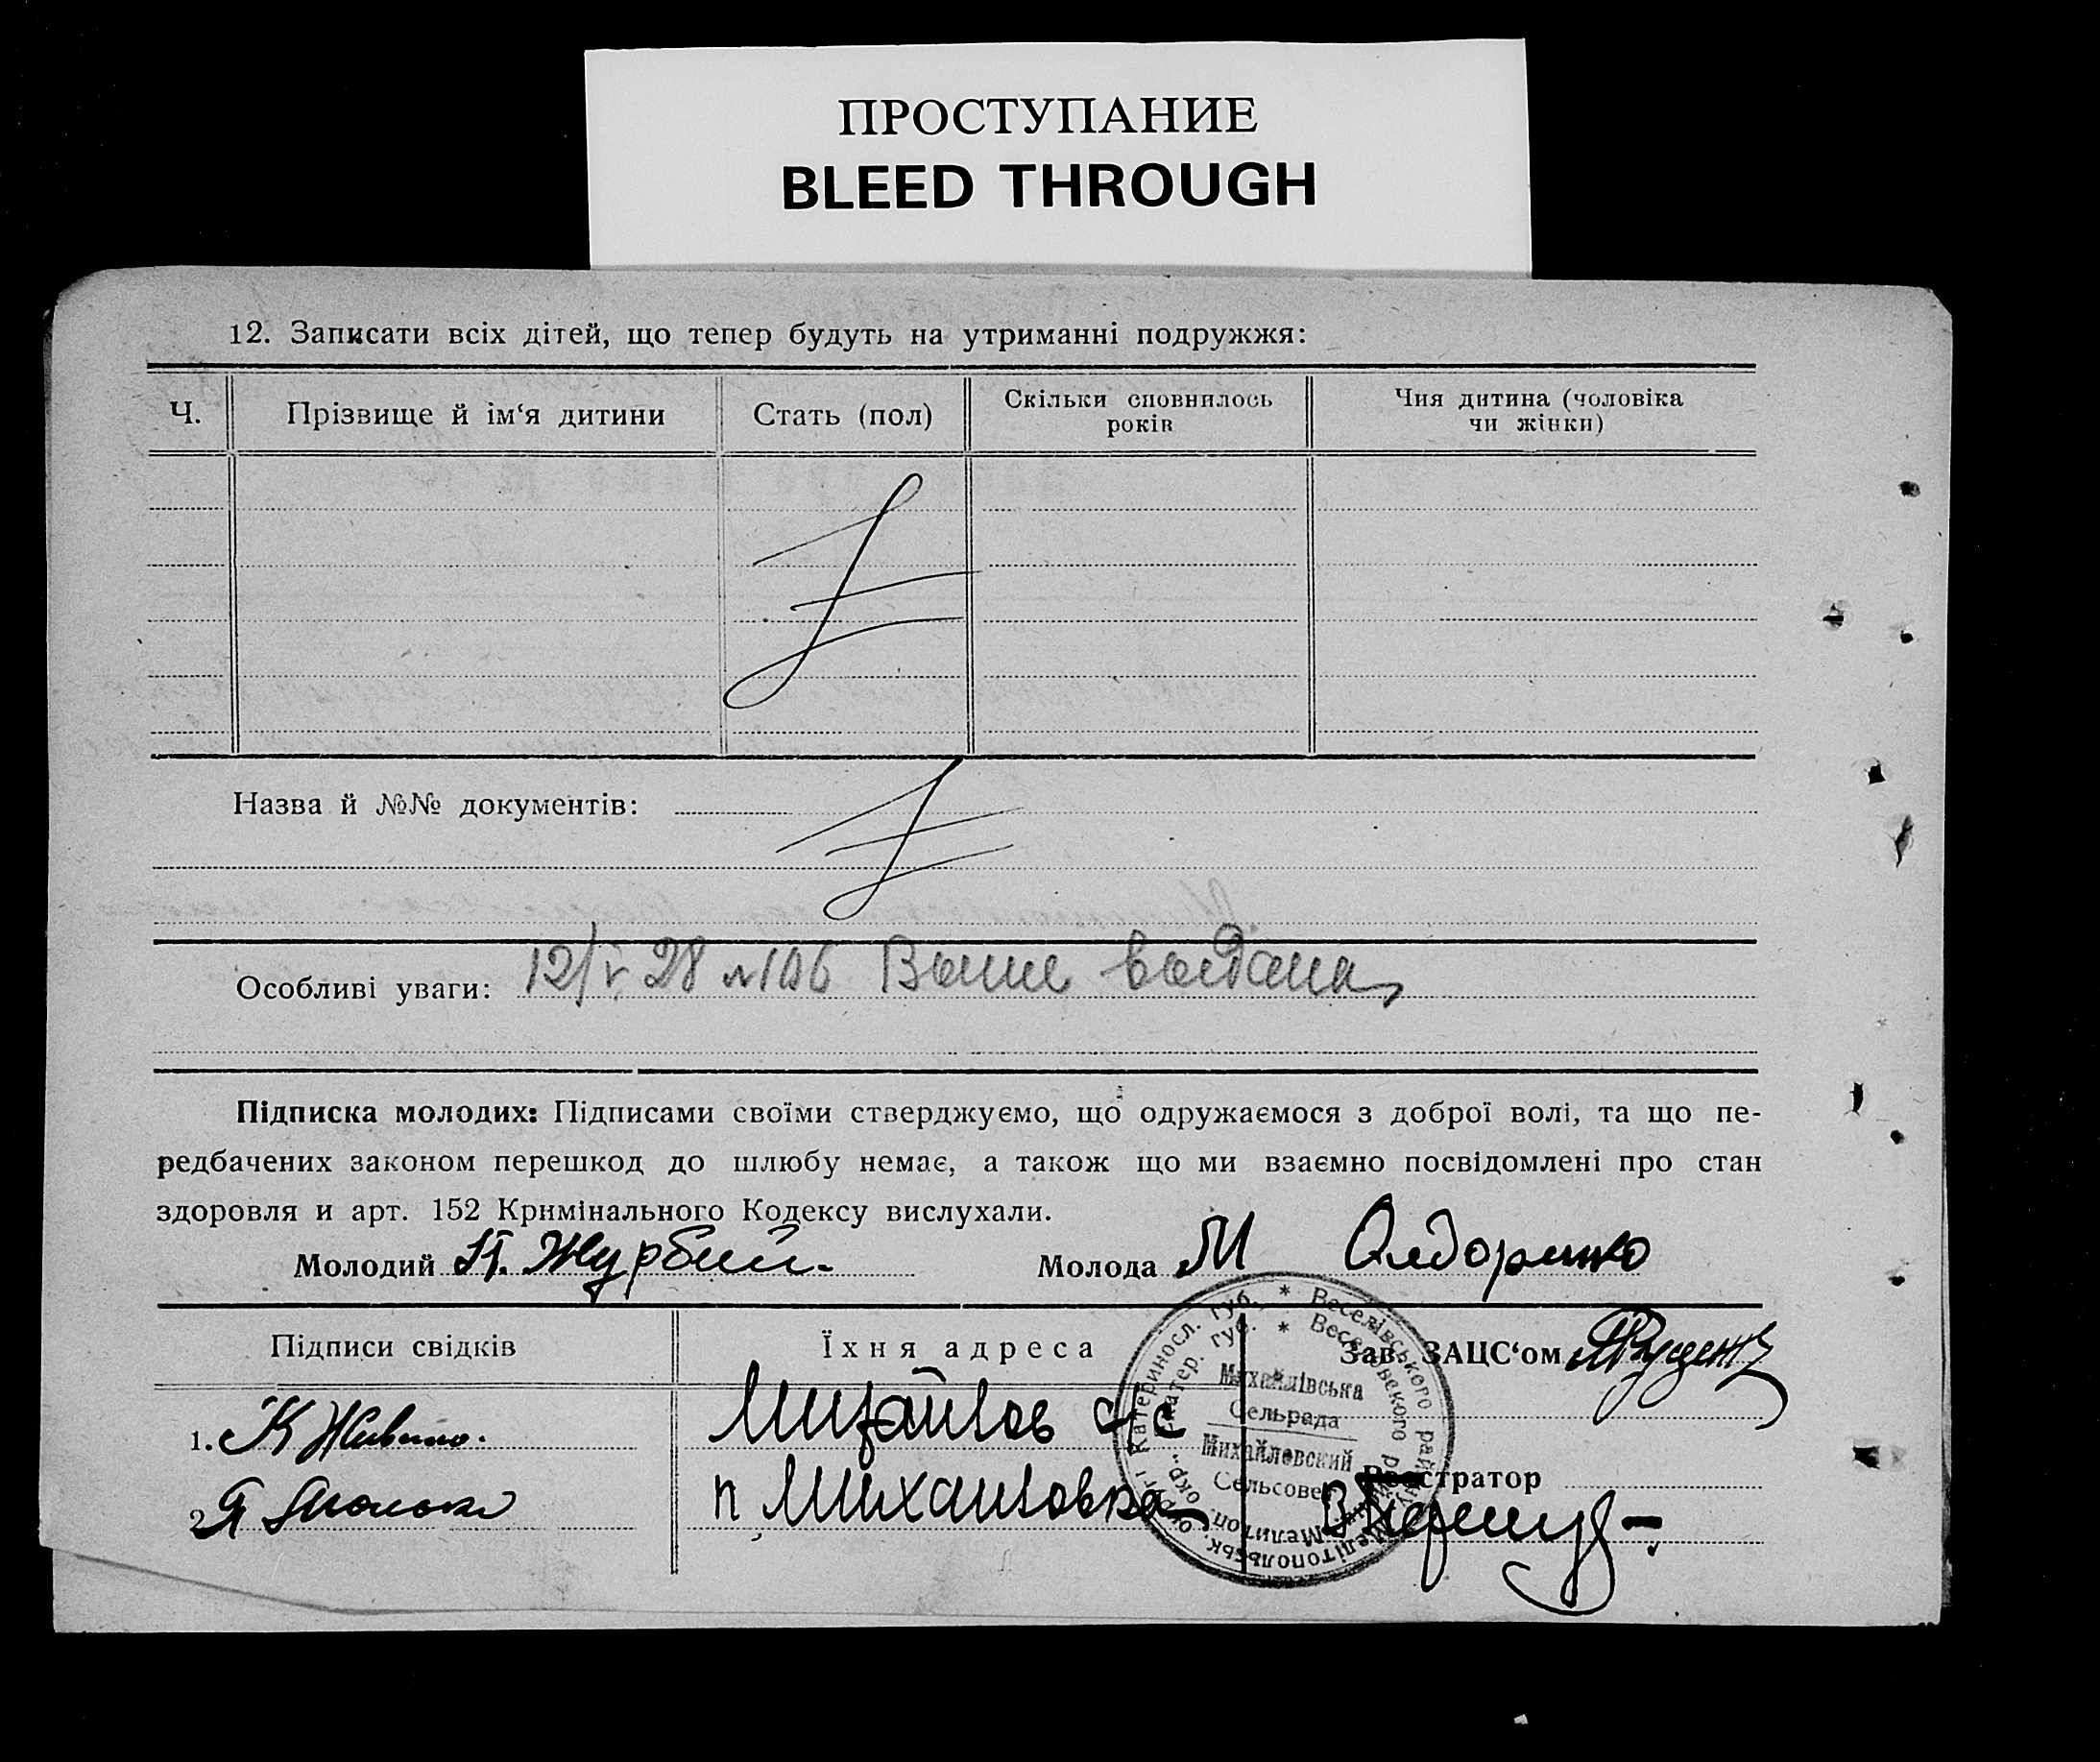 ПРОСТУПАНИЕ
BLEED THROUGH
12. Записати всіх дітей, що тепер будуть на утриманні подружжя:
Ч.
Прізвище й ім‘я дитини
Стать (пол)
Скільки сповнилось
років
Чия дитина (чоловіка
чи жінки)
Назва й №№ документів:
Особливі уваги: 12/V 28 №106
Підписка молодих: Підписами своїми стверджуємо, що одружаємося з доброї волі, та що пе-
редбачених законом перешкод до шлюбу немає, а також що ми взаємно посвідомлені про стан
здоровля и арт. 152 Кримінального Кодексу вислухали.
Молодий
Молода М
Підписи свідків
Їхня адреса
Зав. ЗАЦС‘ом
1. К
2.
п Михайловка
Реєстратор
Михайлівська
Сельрада
Михайловский
Сельсовет
Катериносл. губ. * Веселівського району
Мелітопольськ. окр.